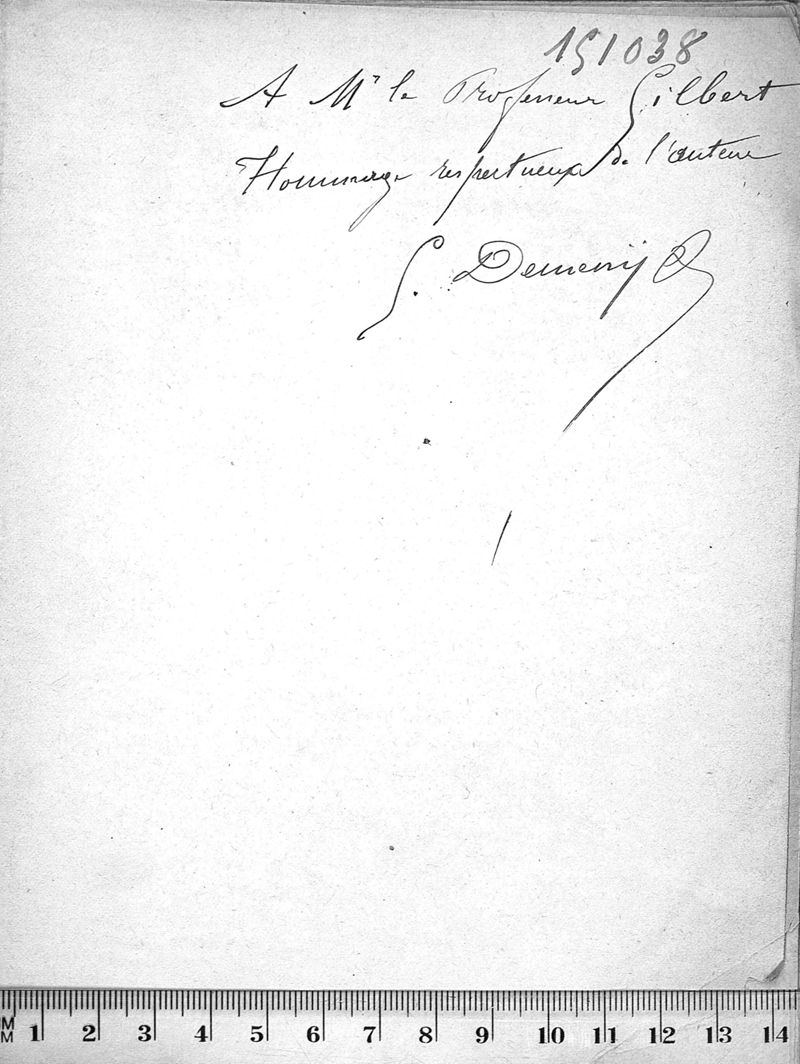 151038
A Mr le Professeur Gilbert
Hommage respectueux de l'auteur
G. Demenÿ
M
M 1 2 3 4 5 6 7 8 9 10 11 12 13 14